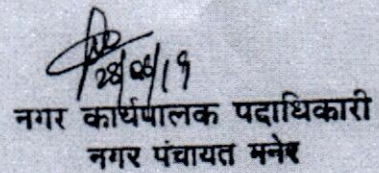 28/06/19
नगर कार्यपालक पदाधिकारी
नगर पंचायत मनेर